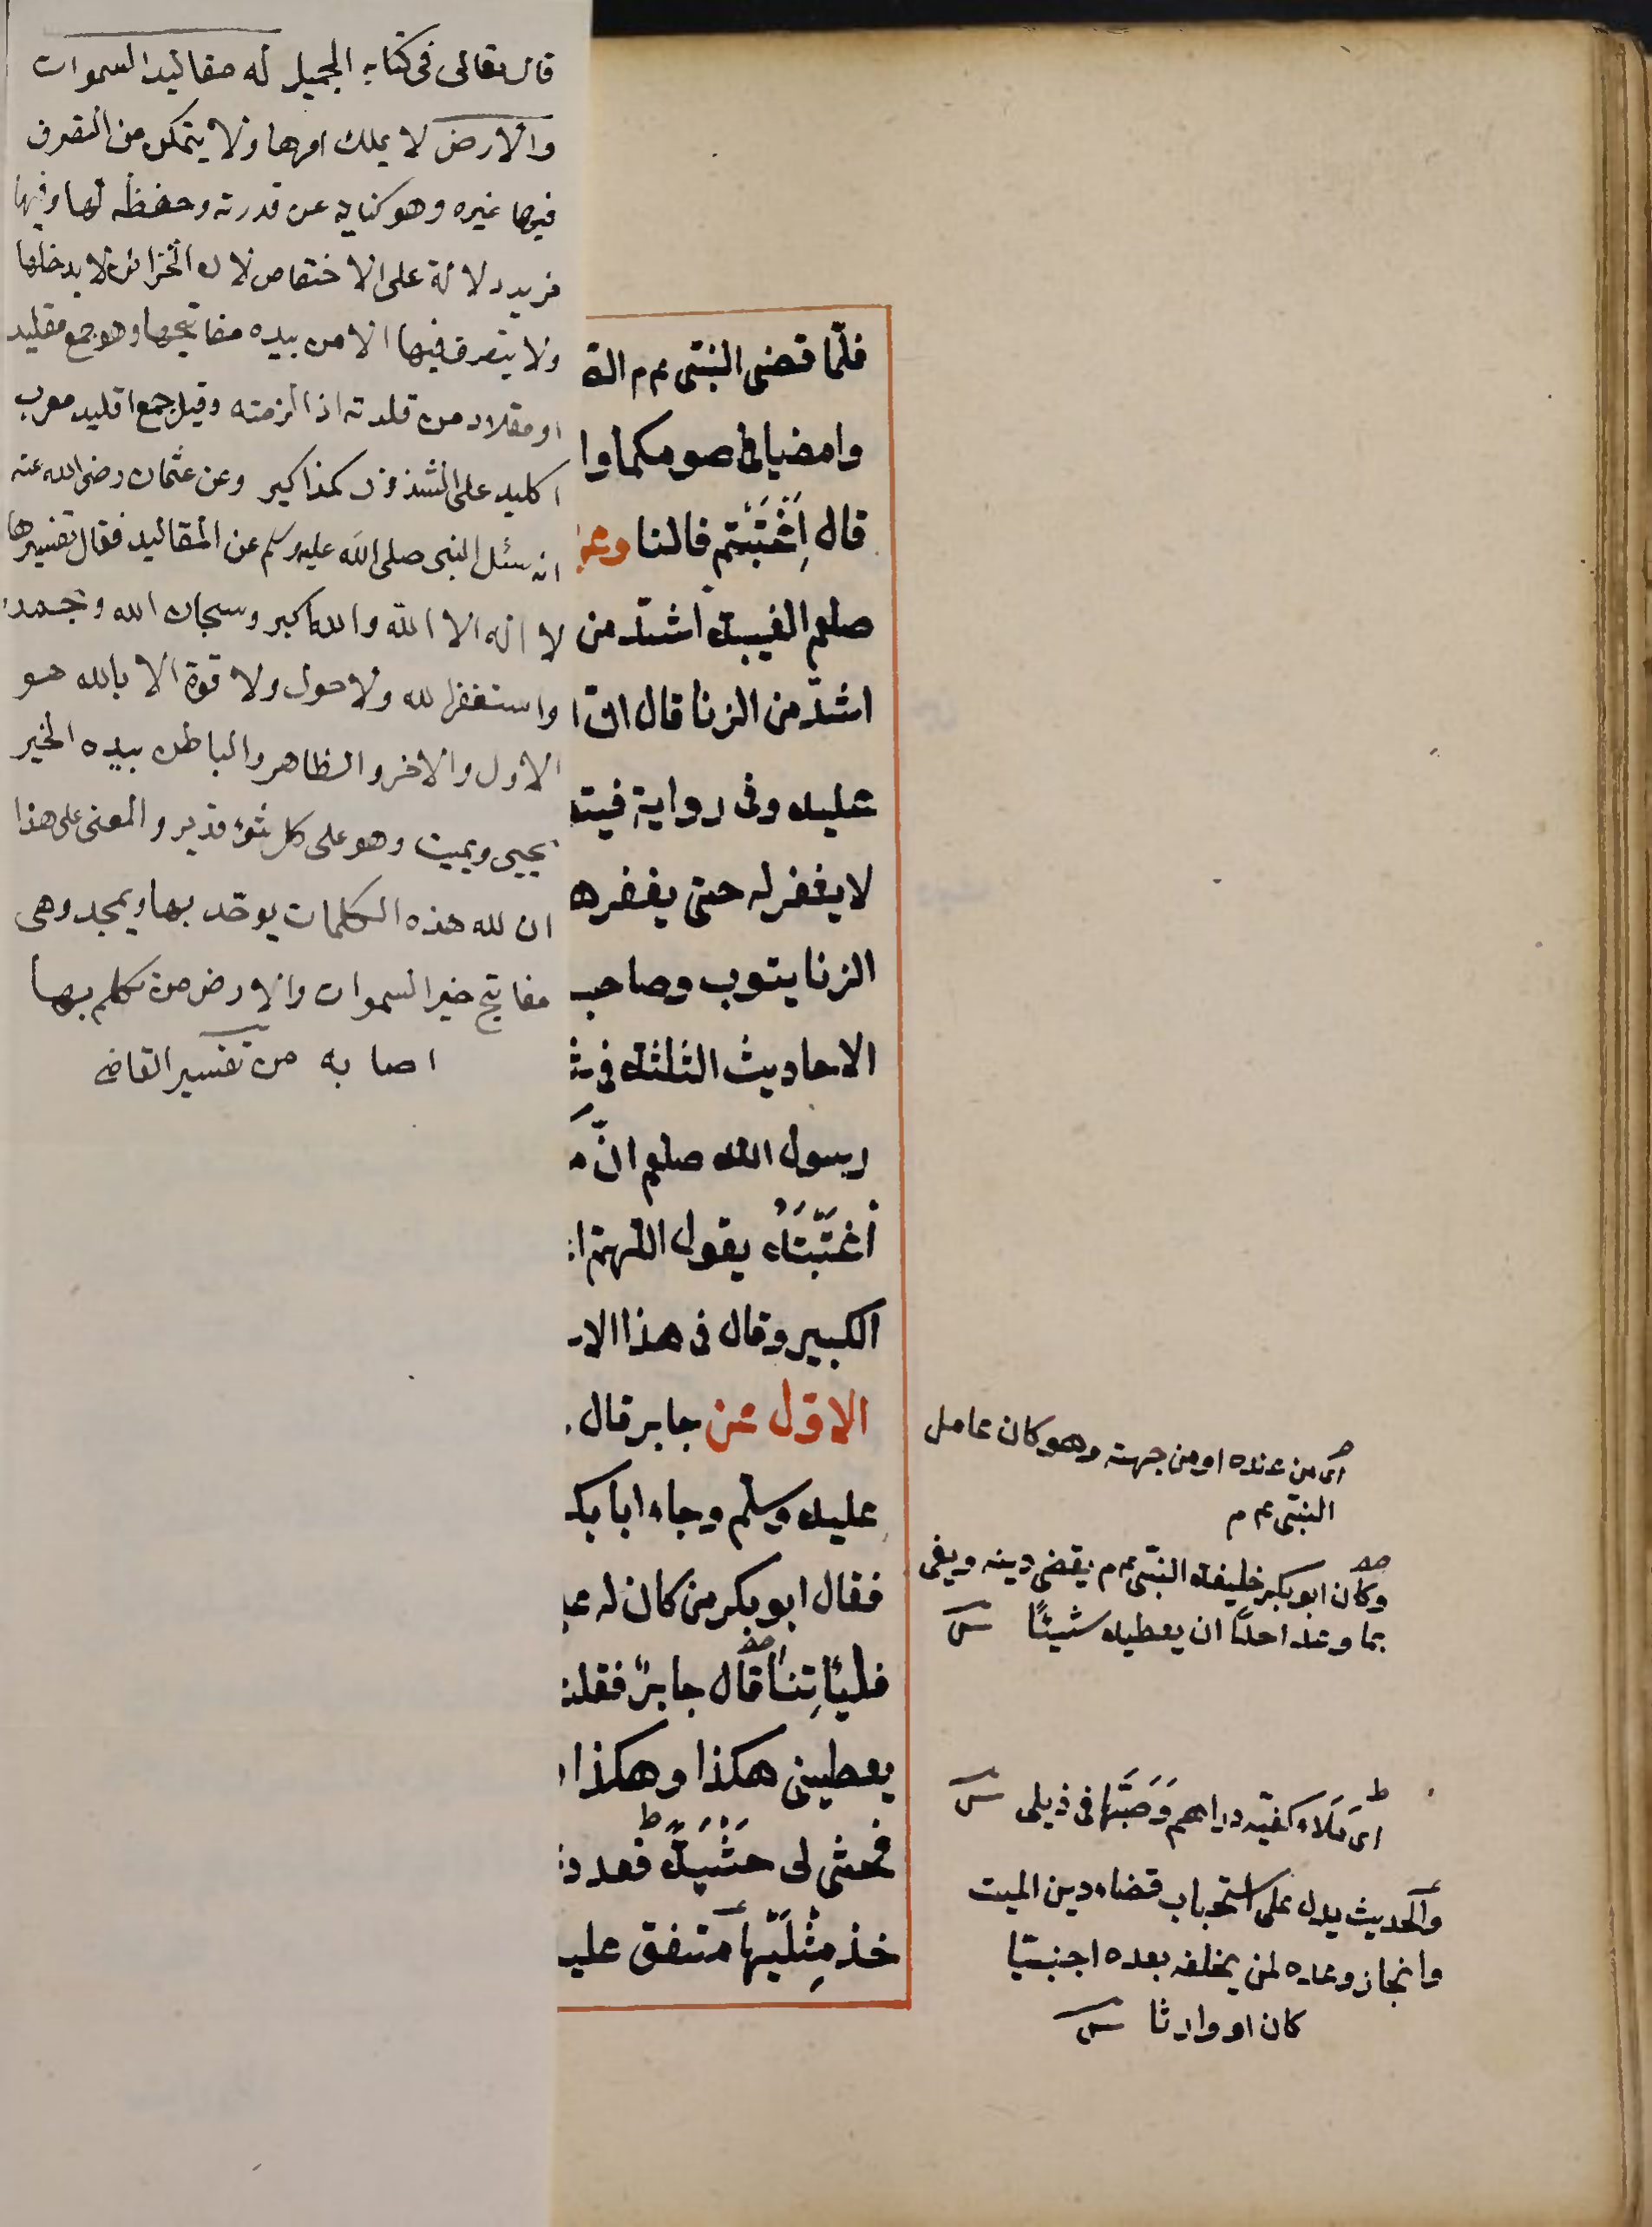 قال تعالى فى كتابه الجميل له مقاليد السموات
والارض لا يملك امرها ولا يتمكن من التصرف
فيها غيره وهو كناية عن قدرته وحفظه لها وفيها
مزيد دلالة على الاختصاص لان الخزائن لا يدخلها
ولا يتصرف فيها الا من بيده مفاتيحها وهو جمع مقليد
او مقلاد من قلدته اذا الزمته وقيل جمع اقليد معرب
اكليد على الشذوذ كمذاكير وعن عثمان رضى الله عنه
انه سئل النبى صلى الله عليه وسلم عن المقاليد فقال تفسيرها
لا اله الا الله والله اكبر وسبحان الله وبحمده
واستغفر الله ولا حول ولا قوة الا بالله هو
الاول والاخر والظاهر والباطن بيده الخير
يحيى ويميت وهو على كل شئ قدير والمعنى على هذا
ان لله هذه الكلمات يوحّد بها ويمجد وهى
مفاتيح خير السموات والارض من تكلم بها
اصابه من تفسير القاضى
فلمّا قضى النبّى عم م الص
وامضيا فى صومكما وا
قال اِغْتَبْتم فلانا وعن
صلعم الغيبة اشدّ من
اشدّ من الزنا قال ان ا
عليه وفى رواية فيت
لا يغفر له حتى يغفرها
الزنا يتوب وصاحب
الاحاديث الثلثة فى ش
رسول الله صلعم انّ م
اُغْتَبْتَهُ يقول اللّهم ا
الكبير وقال فى هذا الا
الاوّل عن جابر قال
عليه وسلّم وجاء ابا بك
فقال ابو بكر من كان له ع
فليَاتِنَا قال جابرٌ فقلت
يعطينى هكذا وهكذا
فحثى لى حَثْيَةً فعدد
خذ مِثْلَيْها متفق علي
اى من عنده او من جهته وهو كان عامل
النبّى عم م
وكان ابو بكر خليفة النبّى عم م يقضى دينه ويفى
بما وعد احدًا ان يعطيه شيئًا
اى مَلَاء كفيّه دراهم وَصَبَّها فى ذيلى
والحديث يدل على استحباب قضاء دين الميت
وانجاز وعده لمن يخلفه بعده اجنبيّا
كان او وارثا